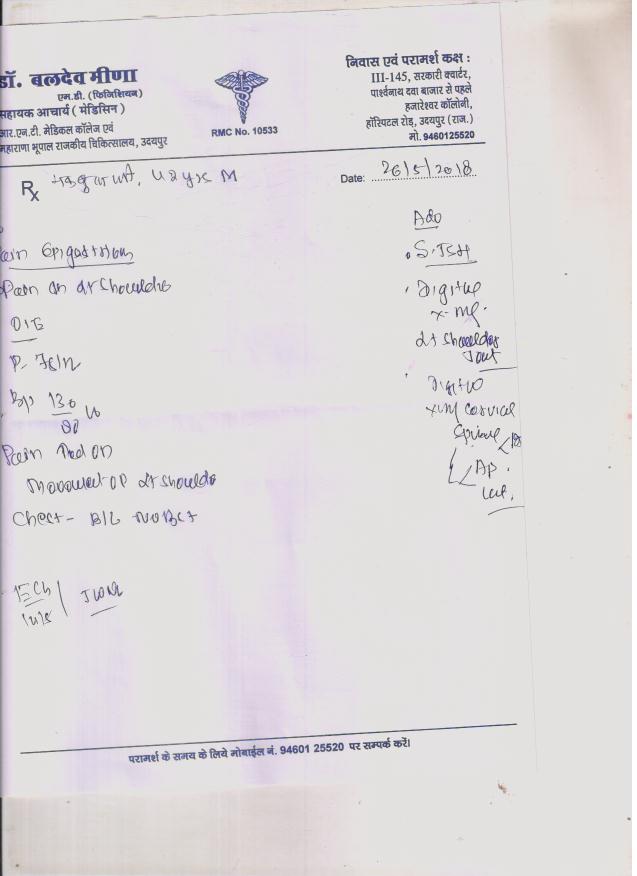 डॉ. बलदेव मीणा
एम.डी. (फिजिशियन)
सहायक आचार्य ( मेडिसिन )
आर.एन.टी. मेडिकल कॉलेज एवं
महाराणा भूपाल राजकीय चिकित्सालय, उदयपुर
RMC No. 10533
निवास एवं परामर्श कक्ष :
III-145, सरकारी क्वार्टर,
पार्श्वनाथ दवा बाजार से पहले
हजारेश्वर कॉलोनी,
हॉस्पिटल रोड़, उदयपुर (राज.)
मो. 9460125520
Rx M
Date: 26/5/2018
Pain Epigastrium
Pain in Lt Shoulder
O/E
P- 78/m
Bp 130
80
Pain on
movement of Lt shoulder
Chest- B/L
ECG
Adv
S. TSH
Digital
x-ray
Lt Shoulder
Joint
Digital
x-ray cervical
spine
AP
Lat.
परामर्श के समय के लिये मोबाईल नं. 94601 25520 पर सम्पर्क करें।